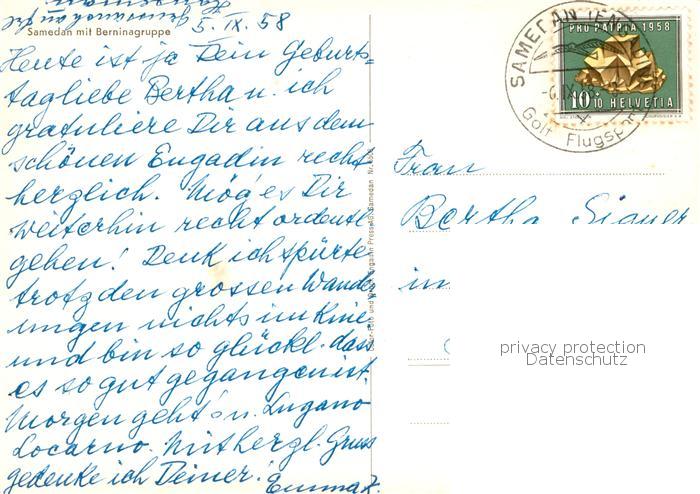 5. IX. 58
Samedan mit Berninagruppe
Heute ist ja Dein Geburts=
tag liebe Bertha u. ich
gratuliere Dir aus dem
schönen Engadin recht
herzlich. Mög es Dir
weiterhin recht ordentl.
gehen! Denk ich spürte
trotz den grossen Wande
rungen nichts im Knie
und bin so glückl. dass
es so gut gegangen ist.
Morgen geht's n. Lugano
Locarno. Mit herzl. Gruss
gedenke ich Deiner!
Emma Z.
SAMEDAN (EN
-6.IX.
Golf Flugspor
PRO PATRIA 1958
10+10 HELVETIA
Frau
Bertha
in
privacy protection
Datenschutz